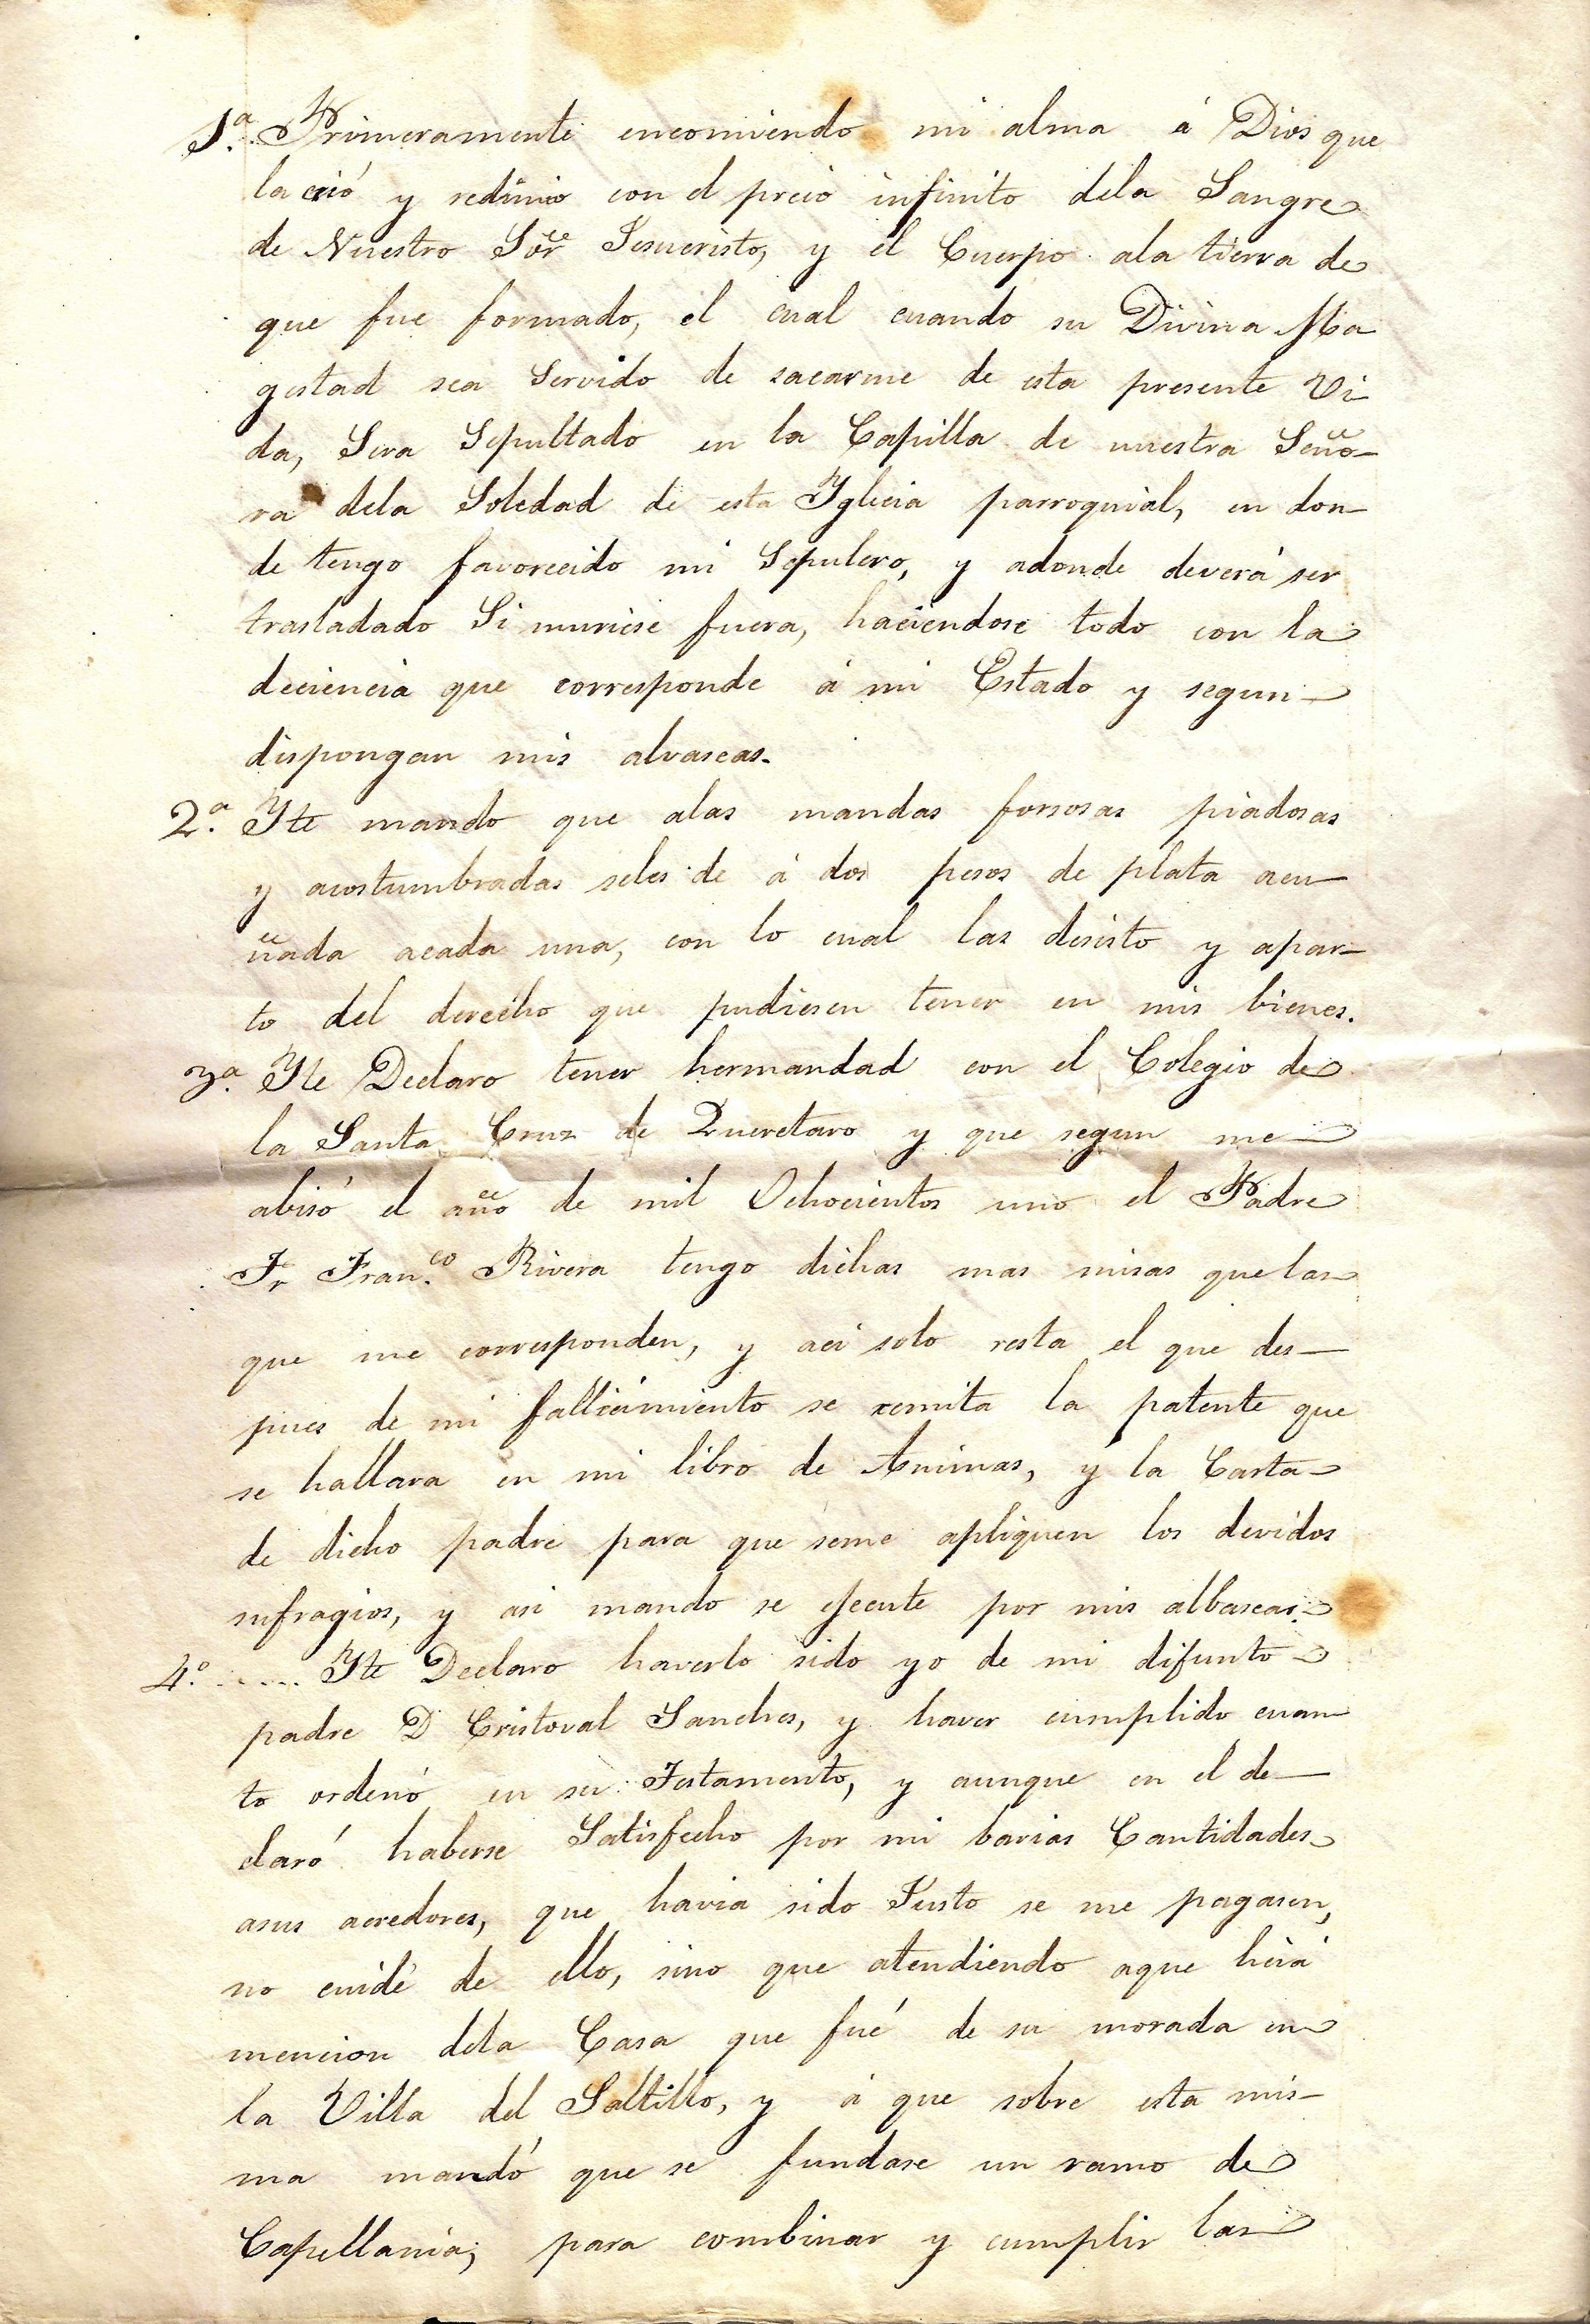 1ª. Primeramente encomiendo mi alma á Dios que
la crió y redimio con el precio infinito dela Sangre
de Nuestro Sor Jesucristo, y el Cuerpo ala tierra de
que fue formado, el cual cuando su Divina Ma
gestad sea Servido de sacarme de esta presente Vi-
da, Sera Sepultado en la Capilla de nuestra Seño-
ra dela Soledad de esta Yglecia parroquial, en don-
de tengo favorecido mi Sepulcro, y adonde deverá ser
trasladado Si muriese fuera, haciendose todo con la
deciencia que corresponde á mi Estado y segun
dispongan mis alvaseas.
2ª. Yte mando que alas mandas forsosas piadosas
y acostumbradas seles de á dos pesos de plata acu-
ñada acada una, con lo cual las desisto y apar-
to del derecho que pudiesen tener en mis bienes.
3ª. Yte Declaro tener hermandad con el Colegio de
la Santa Cruz de Queretaro y que segun me
abisó el año de mil Ochocientos uno el Padre
Fr Fran.co Rivera tengo dichas mas misas que las
que me corresponden, y aci solo resta el que des-
pues de mi fallicimiento se remita la patente que
se hallara en mi libro de Animas, y la Carta
de dicho padre para que seme apliquen los devidos
sufragios, y asi mando se ejecute por mis albaseas.
4º. ..... Yte Declaro haverlo sido yo de mi difunto
padre D Cristoval Sanches, y haver cumplido cuan-
to ordenó en su Testamento, y aunque en el de-
claró haberse Satisfecho por mi barias Cantidades
asus acredores, que havia sido Justo se me pagasen,
no cuidé de ello, sino que atendiendo aque hciá
mencion dela Casa que fué de su morada en
la Villa del Saltillo, y á que sobre esta mis-
ma mandó que se fundase un ramo de
Capellania; para combinar y cumplir las